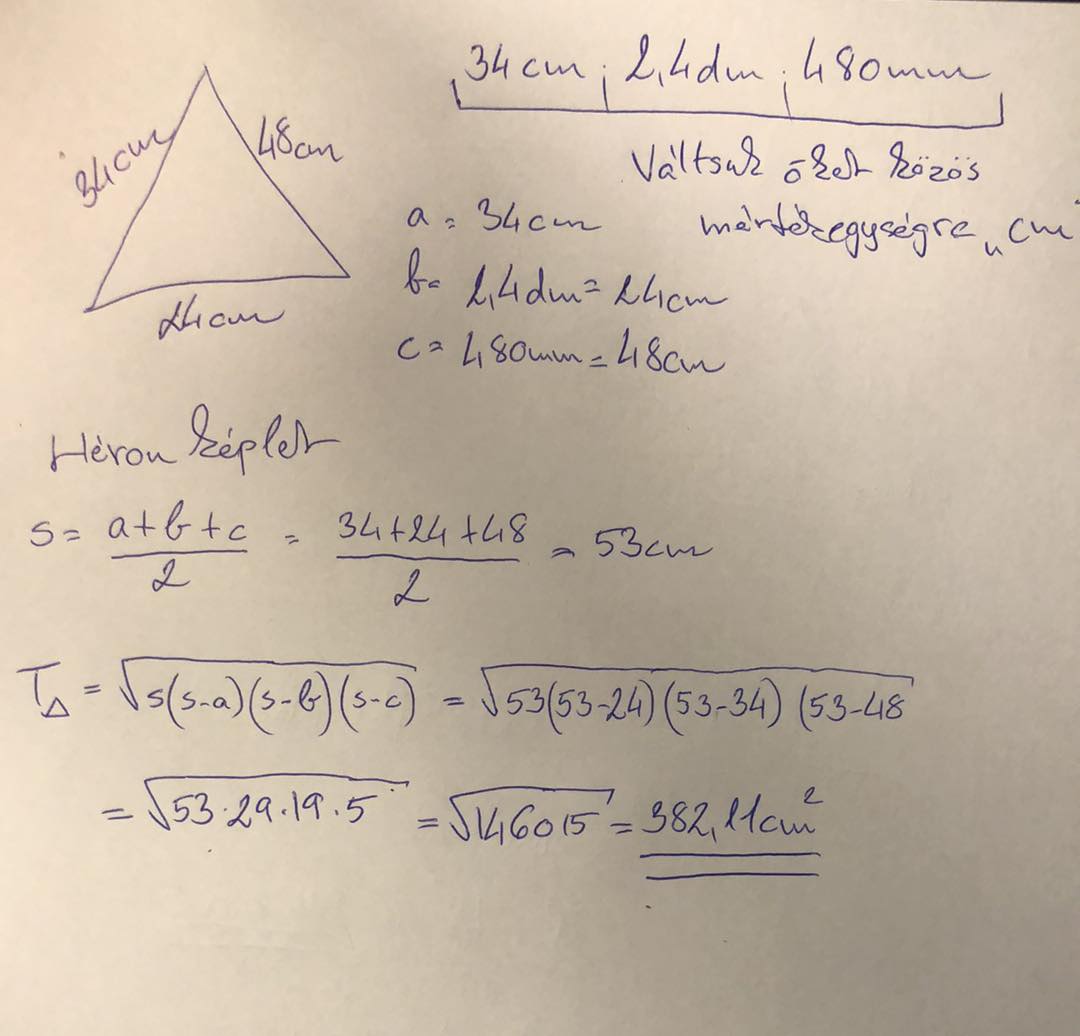 34cm ; 2,4dm ; 480mm
34cm
48cm
24cm
Váltsuk őket közös
mértékegységre „cm"
a = 34cm
b = 2,4dm = 24cm
c = 480mm = 48cm
Héron képlet
s = a+b+c / 2 = 34+24+48 / 2 = 53cm
T△ = √s(s-a)(s-b)(s-c) = √53(53-24)(53-34)(53-48
= √53·29·19·5 = √146015 = 382,11cm²